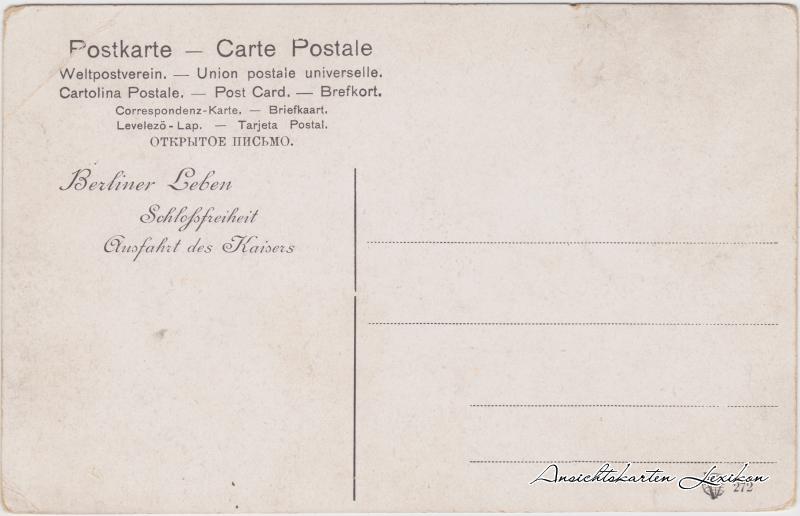 Postkarte — Carte Postale
Weltpostverein. — Union postale universelle.
Cartolina Postale. — Post Card. — Brefkort.
Correspondenz-Karte. — Briefkaart.
Levelező-Lap. — Tarjeta Postal.
ОТКРЫТОЕ ПИСЬМО.
Berliner Leben
Schloßfreiheit
Ausfahrt des Kaisers
Ansichtskarten Lexikon
272